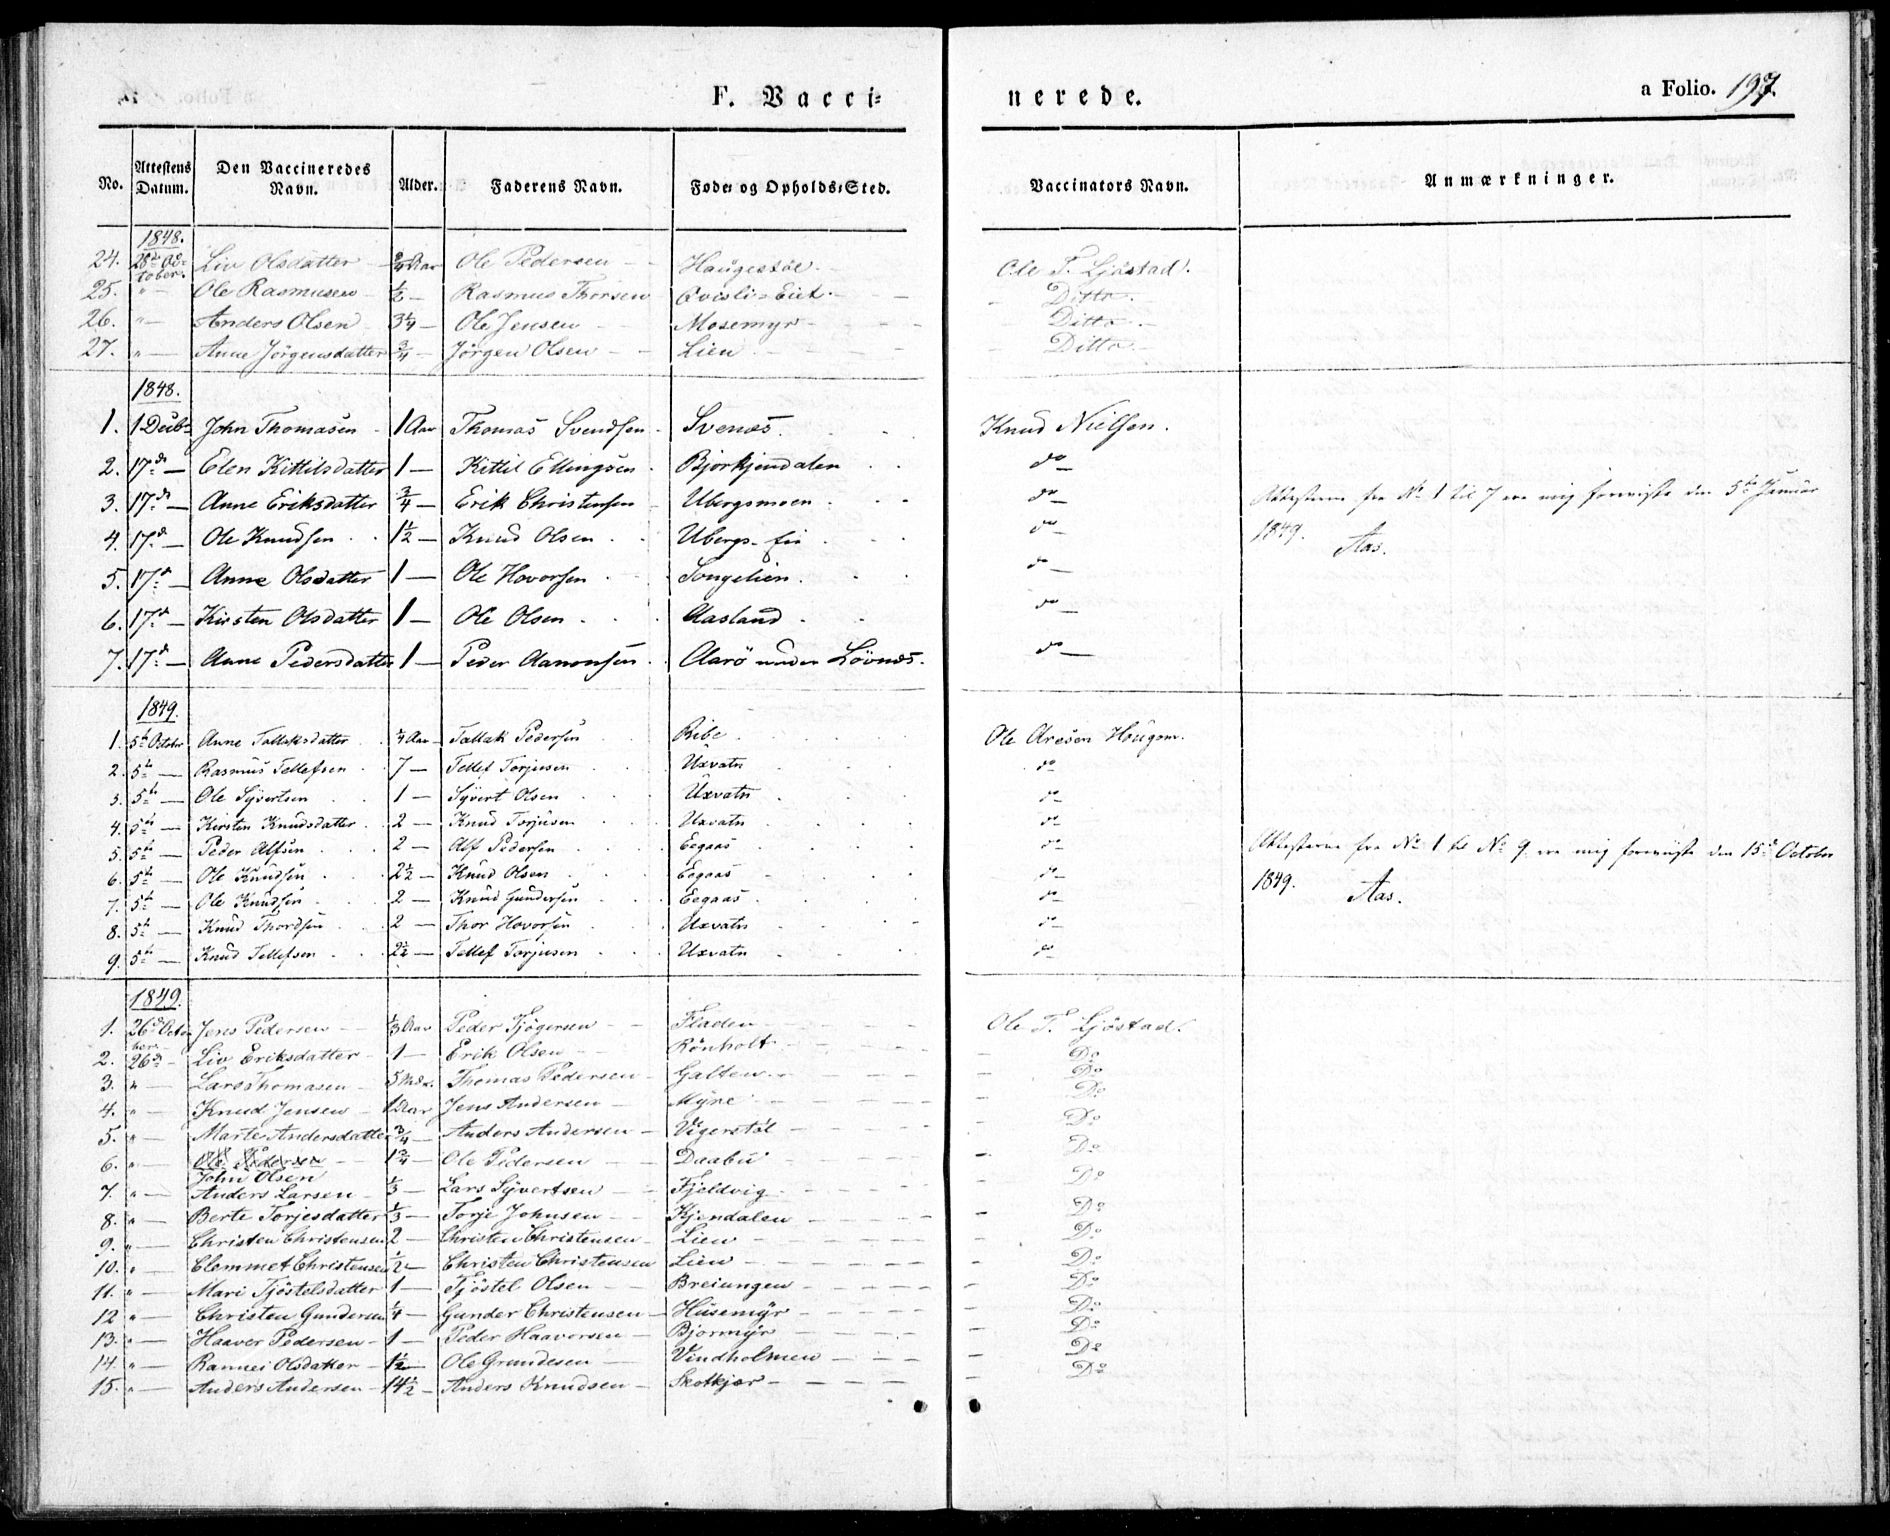 F. Vacci=nerede.
a Folio. 197.
No. Attestens Datum. Den Vaccineredes Navn. Alder. Faderens Navn. Føde= og Opholds=Sted. Vaccinators Navn. Anmærkninger.
1848.
24. 28de October. Liv Olsdatter 3/4 Aar Ole Pedersen Haugestøl. Ole T. Ljöstad.
25. " Ole Rasmusen 1/2 — Rasmus Thorsen Qvisli=Eiet. Ditto.
26. " Anders Olsen 3 1/4 — Ole Jensen Mosemyr Ditto.
27. " Anne Jörgensdatter 3/4 — Jörgen Olsen Lien Ditto.
1848.
1. 1 Decbr John Thomasen 1 Aar Thomas Svendsen Svenæs. Knud Nielsen.
2. 17de — Elen Kittilsdatter 1 — Kittil Ellingsen Bjorkjendalen do
3. 17de — Anne Eriksdatter 3/4 — Erik Christensen Ubergsmoen do Attesterne fra No 1 til 7 ere mig foreviste den 5te Januar
4. 17de — Ole Knudsen 1 1/2 — Knud Olsen Ubergs-Eie do 1849. Aas.
5. 17de — Anne Olsdatter 1 — Ole Hovorsen Songelien. do
6. 17de — Kirsten Olsdatter 1 — Ole Olsen Aasland do
7. 17de — Anne Pedersdatter 1 — Peder Aanonsen Olarö under Lövnæs. do
1849.
1. 5te Octobr Anne Tallaksdatter 3/4 Aar Tallak Pedersen Ribe Ole Aresen Hougom.
2. 5te — Rasmus Tellefsen 7 — Tellef Torjusen Uxvatn do
3. 5te — Ole Syvertsen 1 — Syvert Olsen Uxvatn do
4. 5te — Kirsten Knudsdatter 2 — Knud Torjusen Uxvatn do
5. 5te — Peder Alfsen 2 — Alf Pedersen Eegaas do Attesterne fra No 1 til No 9 ere mig foreviste den 15de October
6. 5te — Ole Knudsen 2 1/2 — Knud Olsen Eegaas do 1849. Aas.
7. 5te — Ole Knudsen 2 — Knud Gundersen Eegaas do
8. 5te — Knud Thordsen 2 — Thor Hovorsen Uxvatn do
9. 5te — Knud Tellefsen 2 1/2 — Tellef Torjusen Uxvatn do
1849.
1. 26de October Jens Pedersen 1/3 Aar Peder Tjögersen Fladen Ole T. Ljöstad.
2. 26de — Liv Eriksdatter 1 — Erik Olsen Rönholt Do
3. " Lars Thomasen 5 Md. Thomas Pedersen Galten Do
4. " Knud Jensen 1 Aar Jens Andersen Myre Do
5. " Marte Andersdatter 3/4 — Anders Andersen Vigerstöl Do
6. " Ole Pedersen 1 3/4 — Ole Pedersen Daabu Do
John Olsen
7. " Anders Larsen 1/3 — Lars Syvertsen Fjeldvig Do
8. " Berte Torjesdatter 1/3 — Torje Johnsen Kjendalen Do
9. " Christen Christensen 2 — Christen Christensen Lien Do
10. " Clommet Christensen 1/2 — Christen Christensen Lien Do
11. " Mari Tjöstelsdatter 1 — Tjöstel Olsen Breiungen Do
12 " Christen Gundersen 1/4 — Gunder Christensen Husemyr Do
13. " Haaver Pedersen 1 — Peder Haavorsen Bjormyr Do
14. " Rannei Olsdatter 1 1/2 — Ole Grundesen Vindholmen Do
15. " Anders Andersen 14 1/2 — Anders Knudsen Skotkjær Do